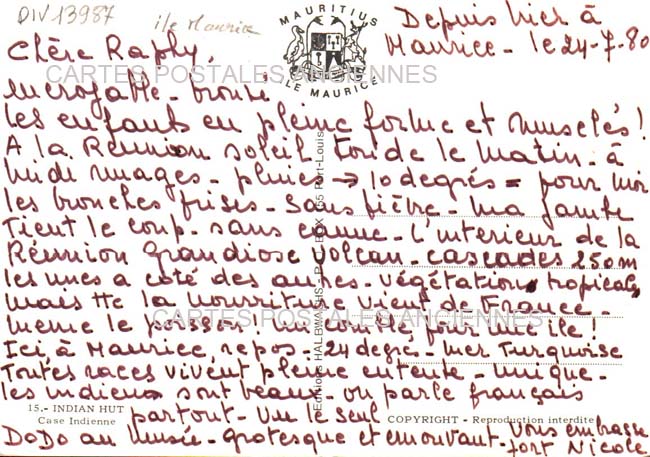 DIV 13987
ile Maurice
MAURITIUS
ILE MAURICE
Depuis hier à
Maurice - le 24-7-80
Chère Raphy,
CARTES POSTALES ANCIENNES
incroyable - bronzé
les enfants en pleine forme et musclés!
A la Réunion soleil torride le matin - à
midi nuages - pluies → 10 degrés = pour moi
les bronches prises - sans fièvre - ma jambe
tient le coup - sans canne - L'intérieur de la
Réunion grandiose volcan - cascades 250m
les unes a coté des autres - végétation tropicale
mais tte la nourriture vient de France -
même le poisson! un comble pour une ile!
CARTES POSTALES ANCIENNES
Ici, à Maurice, repos - 24 degré - Mer Turquoise
Toutes races vivent pleine entente - unique -
les indiens sont beaux - on parle français
15.- INDIAN HUT
Case Indienne
partout - vu le seul
COPYRIGHT - Reproduction interdite
DODO au Musée - grotesque et émouvant - Vous embrasse
fort Nicole
Editions HALBWACHS - P.O. BOX 155 Port-Louis